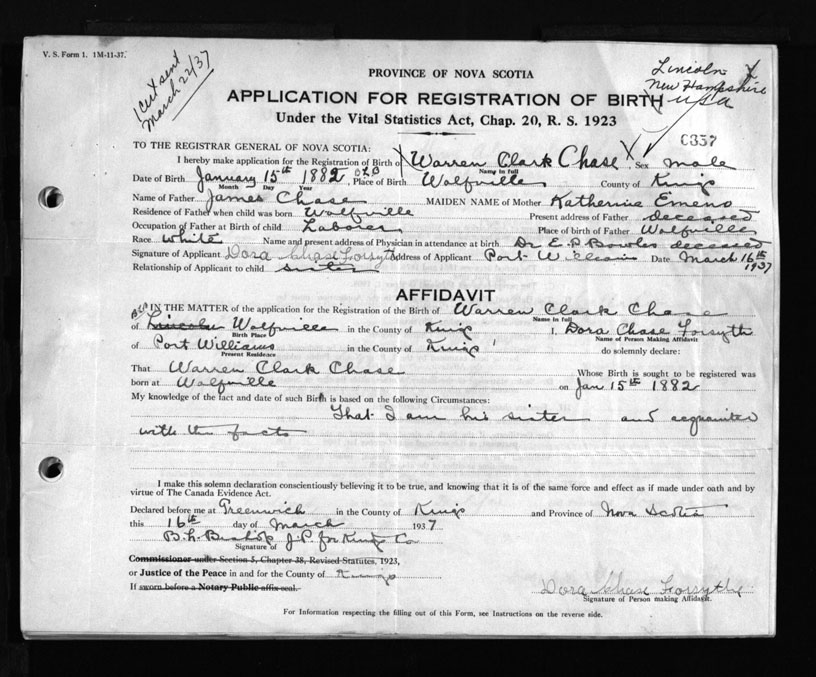 V. S. Form 1. 1M-11-37.
1 cert sent
March 22/37
Lincoln
New Hampshire
USA
PROVINCE OF NOVA SCOTIA
APPLICATION FOR REGISTRATION OF BIRTH
Under the Vital Statistics Act, Chap. 20, R. S. 1923
C357
TO THE REGISTRAR GENERAL OF NOVA SCOTIA:
I hereby make application for the Registration of Birth of Warren Clark Chase Sex male
Name in full
Date of Birth January 15th 1882, Place of Birth Wolfville County of Kings
Month Day Year
Name of Father James Chase MAIDEN NAME of Mother Katherine Emeno
Residence of Father when child was born Wolfville Present address of Father deceased
Occupation of Father at Birth of child Laborer Place of birth of Father Wolfville
Race White Name and present address of Physician in attendance at birth Dr E. P. Bowles deceased
Signature of Applicant Dora Chase Forsyth Address of Applicant Port Williams Date March 16th 1937
Relationship of Applicant to child sister
AFFIDAVIT
IN THE MATTER of the application for the Registration of the Birth of Warren Clark Chase
Name in full
of Lincoln Wolfville in the County of Kings I, Dora Chase Forsyth
Birth Place Name of Person Making Affidavit
of Port Williams in the County of Kings do solemnly declare:
Present Residence
That Warren Clark Chase Whose Birth is sought to be registered was
born at Wolfville on Jan 15th 1882
My knowledge of the fact and date of such Birth is based on the following Circumstances:
That I am his sister and acquainted
with the facts
I make this solemn declaration conscientiously believing it to be true, and knowing that it is of the same force and effect as if made under oath and by
virtue of The Canada Evidence Act.
Declared before me at Greenwich in the County of Kings and Province of Nova Scotia
this 16th day of March 1937
B. H. Bishop J. P. for Kings Co
Signature of
Commissioner under Section 5, Chapter 38, Revised Statutes, 1923,
or Justice of the Peace in and for the County of Kings
If sworn before a Notary Public affix seal.
Dora Chase Forsythe
Signature of Person making Affidavit.
For Information respecting the filling out of this Form, see Instructions on the reverse side.